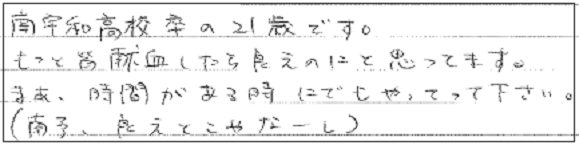 南宇和高校卒の21歳です。
もっと皆献血したら良えのにと思ってます。
まあ、時間がある時にでもやってって下さい。
(南予、良えとこやなーし)